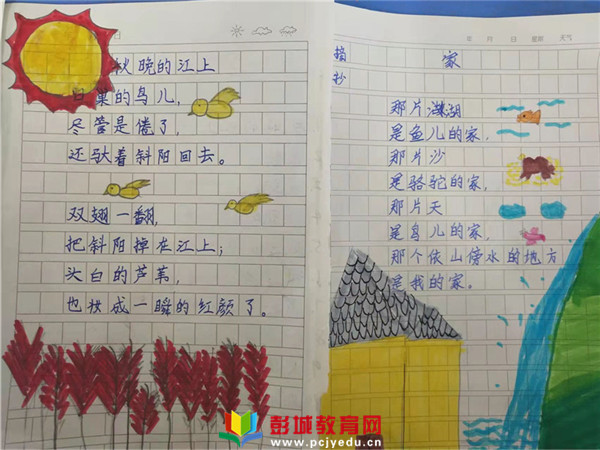 日
秋晚的江上
归巢的鸟儿,
尽管是倦了,
还驮着斜阳回去。
双翅一翻,
把斜阳掉在江上;
头白的芦苇,
也妆成一瞬的红颜了。
年 月 日 星期 天气
摘抄
家
那片湖
是鱼儿的家,
那片沙
是骆驼的家,
那片天
是鸟儿的家,
那个依山傍水的地方
是我的家。
彭城教育网
www.pcjyedu.cn